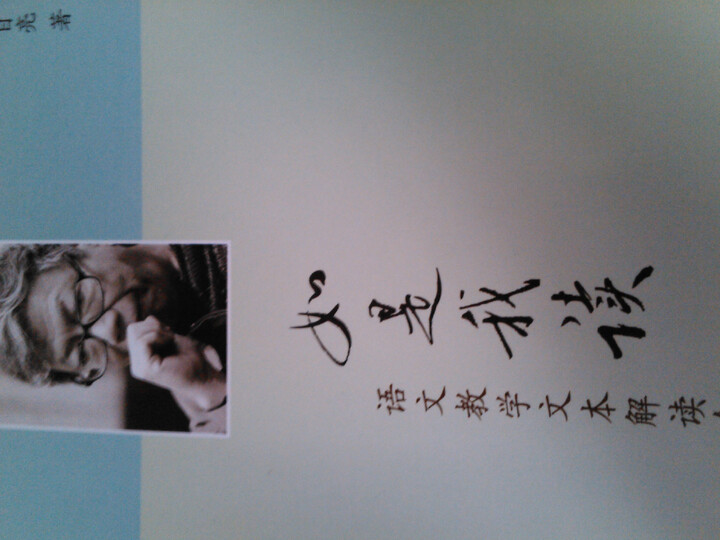 日亮 著
如是我读
语文教学文本解读